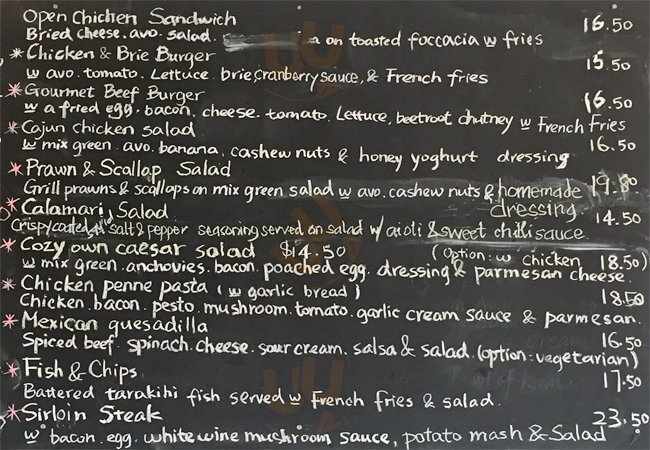 Open Chicken Sandwich 16.50
Bried cheese. avo. salad. on toasted foccacia w fries
* Chicken & Brie Burger 15.50
w avo. tomato. Lettuce. brie, cranberry sauce, & French fries
* Gourmet Beef Burger 16.50
w a fried egg. bacon. cheese. tomato. Lettuce, beetroot chutney w French Fries
* Cajun chicken salad 16.50
w mix green. avo. banana, cashew nuts & honey yoghurt dressing
* Prawn & Scallop Salad
Grill prawns & scallops on mix green salad w avo. cashew nuts & homemade dressing
* Calamari Salad 14.50
Crispy coated salt & pepper seasoning served on salad w/ aioli & sweet chili sauce
* Cozy own caesar salad $14.50 (option: w chicken 18.50)
w mix green. anchovies. bacon. poached egg. dressing & parmesan cheese.
* Chicken penne pasta (w garlic bread) 18.50
Chicken. bacon. pesto. mushroom. tomato. garlic cream sauce & parmesan.
* Mexican quesadilla 16.50
Spiced beef. spinach. cheese. sour cream. salsa & salad. (option: vegetarian)
* Fish & Chips 17.50
Battered tarakihi fish served w French fries & salad.
* Sirloin Steak 23.50
w bacon. egg. white wine mushroom sauce, potato mash & Salad